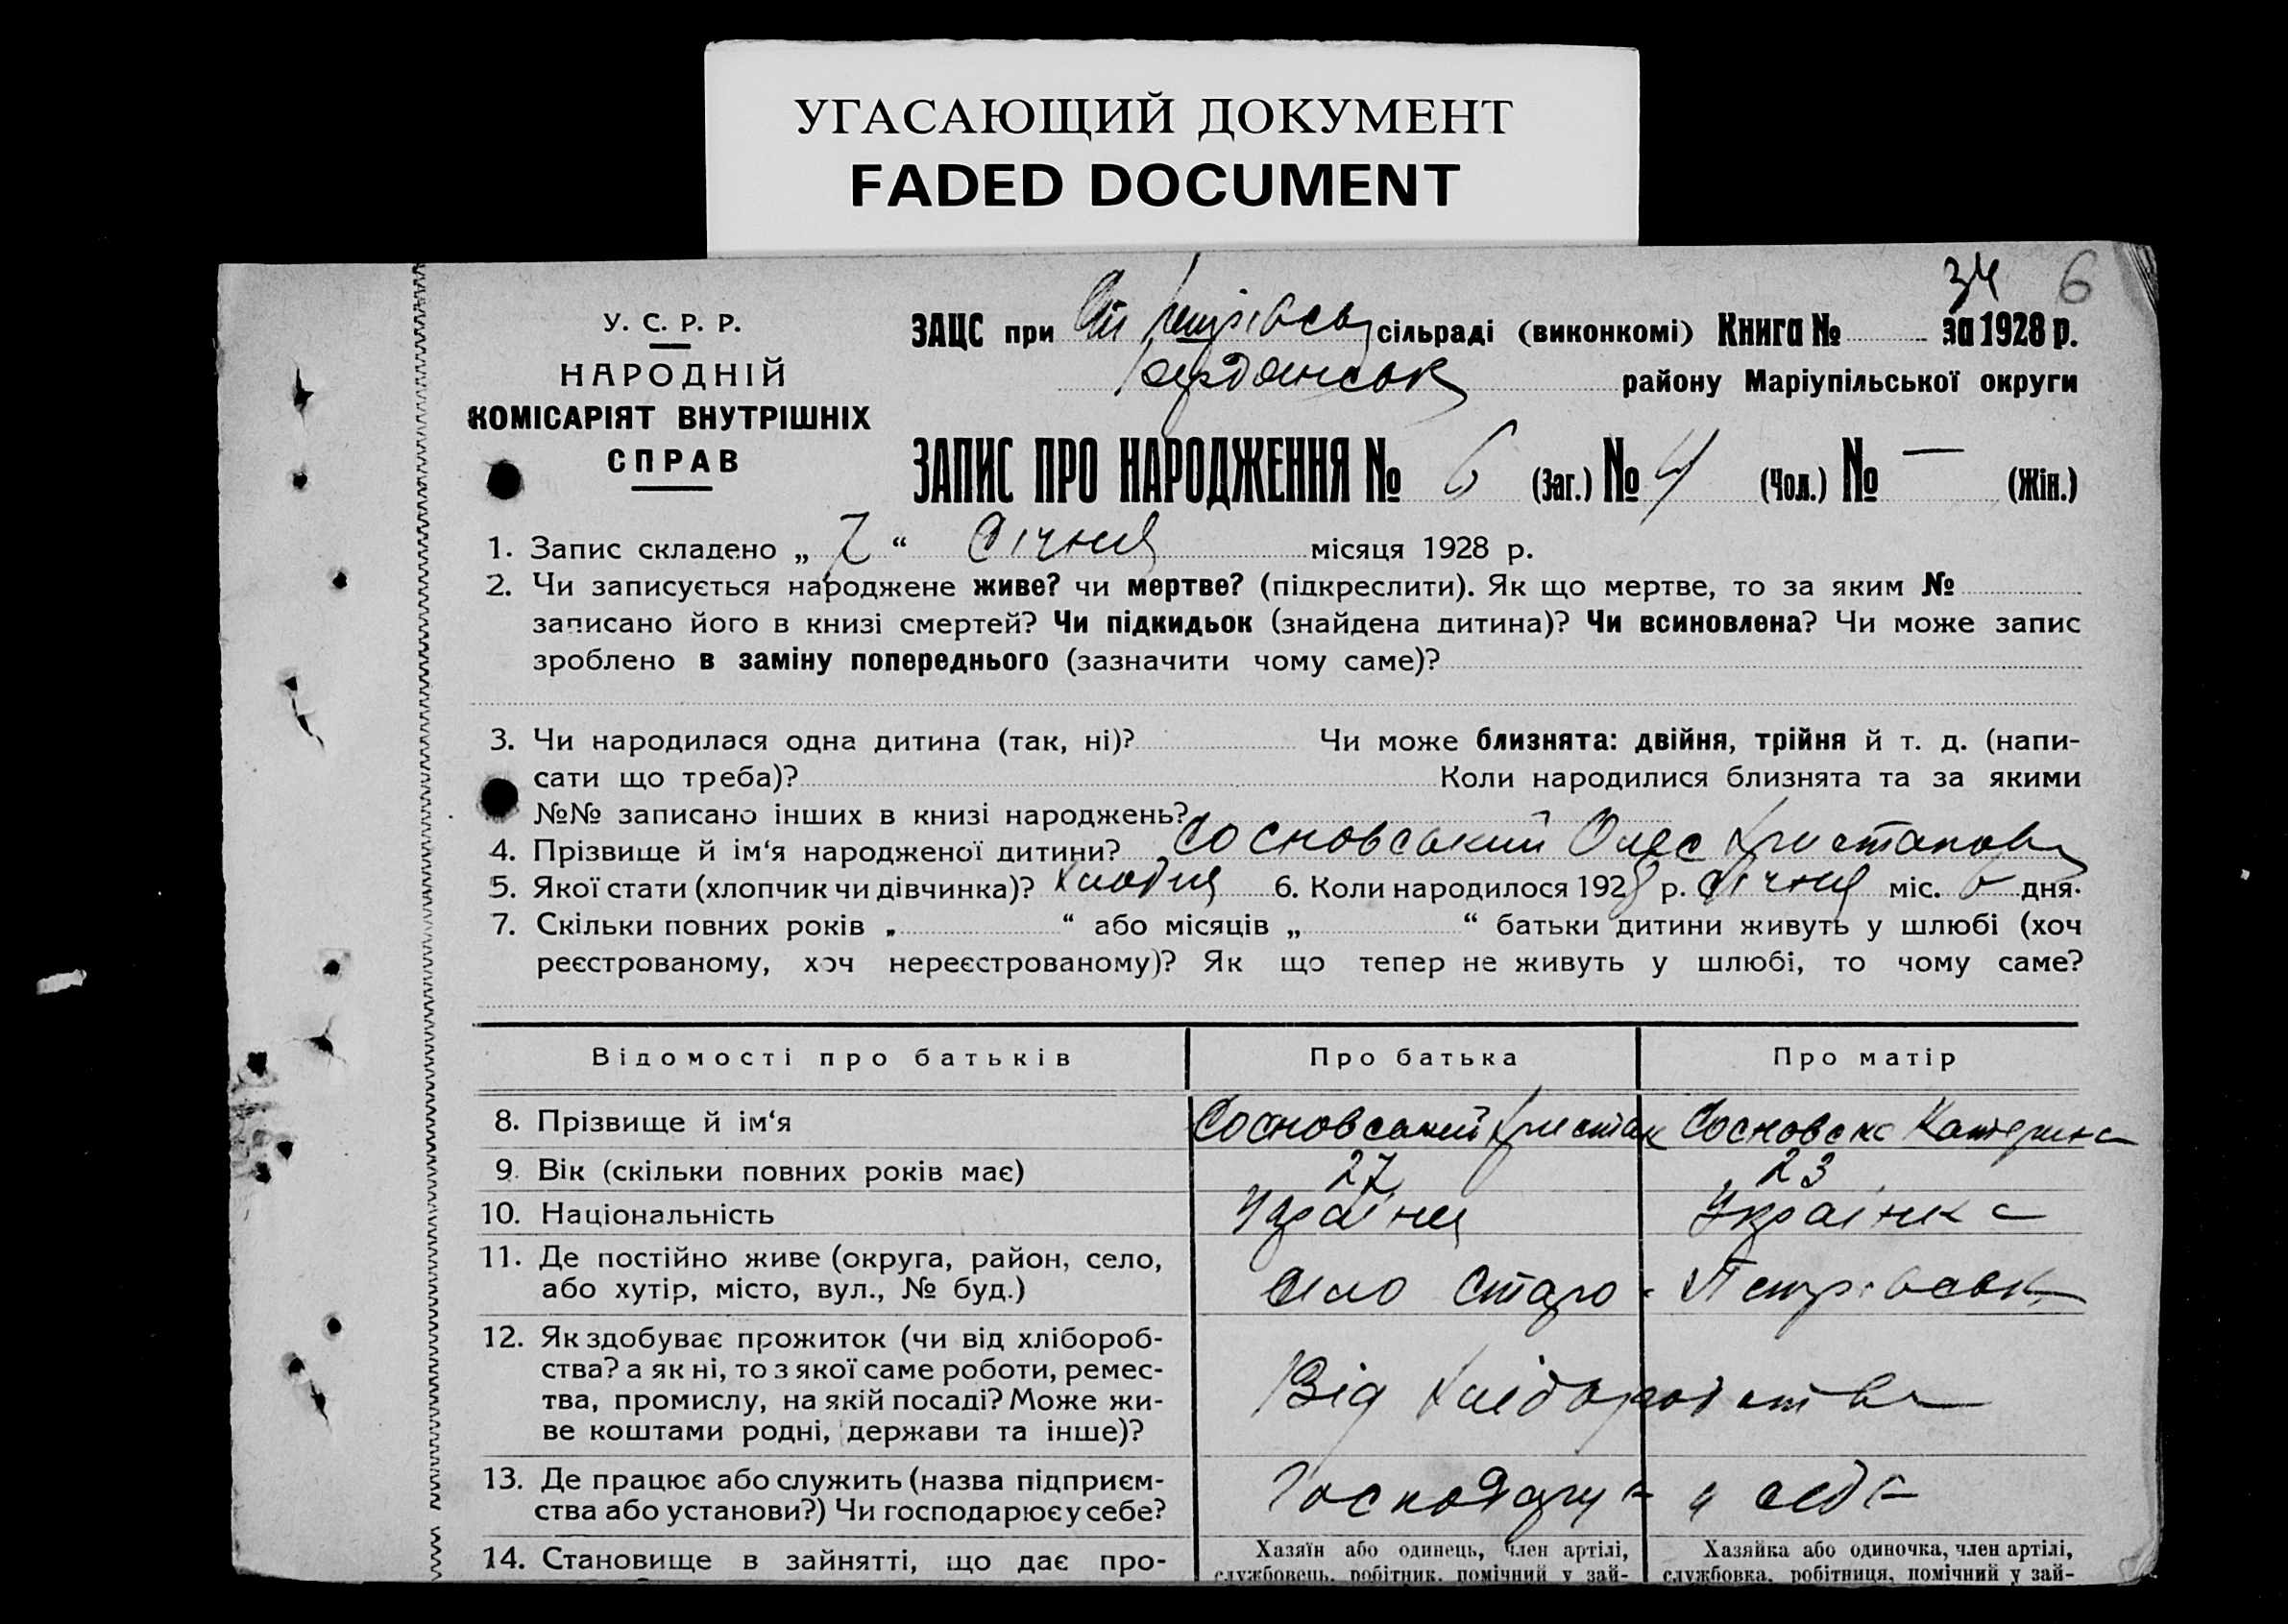 УГАСАЮЩИЙ ДОКУМЕНТ
FADED DOCUMENT
34 6
У. С. Р. Р.
НАРОДНІЙ
КОМІСАРІЯТ ВНУТРІШНІХ
СПРАВ
ЗАЦС при сільраді (виконкомі) Книга № за 1928 р.
Бердянськ району Маріупільської округи
ЗАПИС ПРО НАРОДЖЕННЯ № 6 (Заг.) № 4 (Чол.) № — (Жін.)
1. Запис складено „ 7 “ Січня місяця 1928 р.
2. Чи записується народжене живе? чи мертве? (підкреслити). Як що мертве, то за яким №
записано його в книзі смертей? Чи підкидьок (знайдена дитина)? Чи всиновлена? Чи може запис
зроблено в заміну попереднього (зазначити чому саме)?
3. Чи народилася одна дитина (так, ні)? Чи може близнята: двійня, трійня й т. д. (напи-
сати що треба)? Коли народилися близнята та за якими
№№ записано інших в книзі народжень?
4. Прізвище й ім‘я народженої дитини? Сосновський Олес
5. Якої стати (хлопчик чи дівчинка)? 6. Коли народилося 1928 р. Січня міс. дня.
7. Скільки повних років „ “ або місяців „ “ батьки дитини живуть у шлюбі (хоч
реєстрованому, хоч нереєстрованому)? Як що тепер не живуть у шлюбі, то чому саме?
Відомості про батьків Про батька Про матір
8. Прізвище й ім‘я Сосновський Христан Сосновска Катерина
9. Вік (скільки повних років має) 27 23
10. Національність Українц Українка
11. Де постійно живе (округа, район, село,
або хутір, місто, вул., № буд.) Село Старо-Петрівськ
12. Як здобуває прожиток (чи від хлібороб-
ства? а як ні, то з якої саме роботи, ремес-
тва, промислу, на якій посаді? Може жи-
ве коштами родні, держави та інше)? Від хліборобства
13. Де працює або служить (назва підприєм-
ства або установи?) Чи господарює у себе? Господарує у себе
14. Становище в зайнятті, що дає про-
Хазяїн або одинець, член артілі,
службовець, робітник, помічний у зай-
Хазяйка або одиночка, член артілі,
службовка, робітниця, помічний у зай-